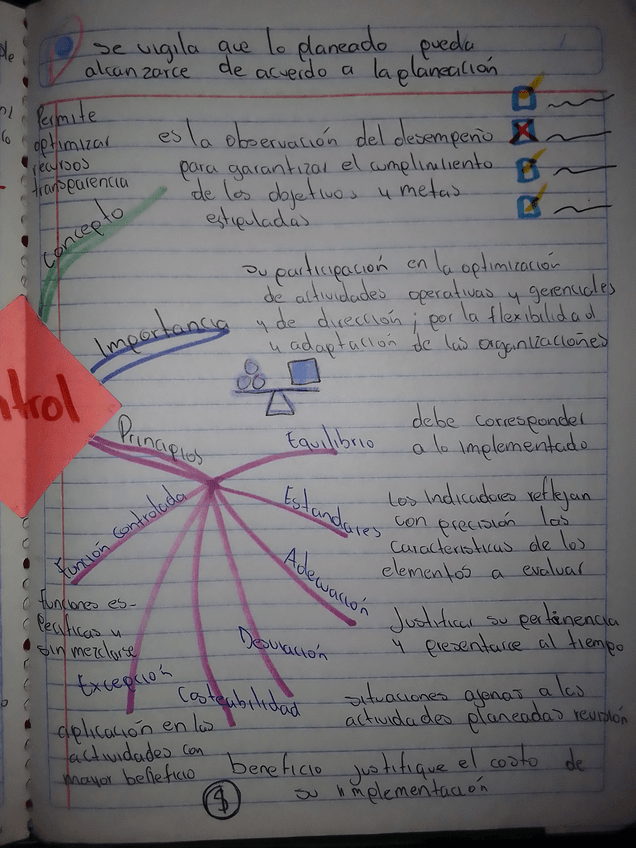 se vigila que lo planeado pueda
alcanzarce de acuerdo a la planeación
Permite
optimizar
recursos
transparencia
es la observación del desempeño
para garantizar el cumplimiento
de los objetivos y metas
estipuladas
Concepto
su participación en la optimización
de actividades operativas y gerenciales
y de dirección; por la flexibilidad
y adaptación de las organizaciones
Importancia
ntrol
Principios
Equilibrio
debe corresponder
a lo implementado
Estandares
los indicadores reflejan
con precisión las
caracteristicas de los
elementos a evaluar
Función controlada
funciones es-
pecíficas y
sin mezclarse
Adecuación
Justificar su pertenencia
y presentarce al tiempo
Desviación
situaciones agenas a las
actividades planeadas revisión
Excepción
aplicación en las
actividades con
mayor beneficio
Costeabilidad
beneficio justifique el costo de
su implementación
$